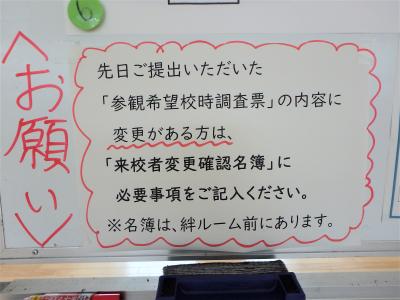 6
＜お願い＞
先日ご提出いただいた
「参観希望校時調査票」の内容に
変更がある方は、
「来校者変更確認名簿」に
必要事項をご記入ください。
※名簿は、絆ルーム前にあります。